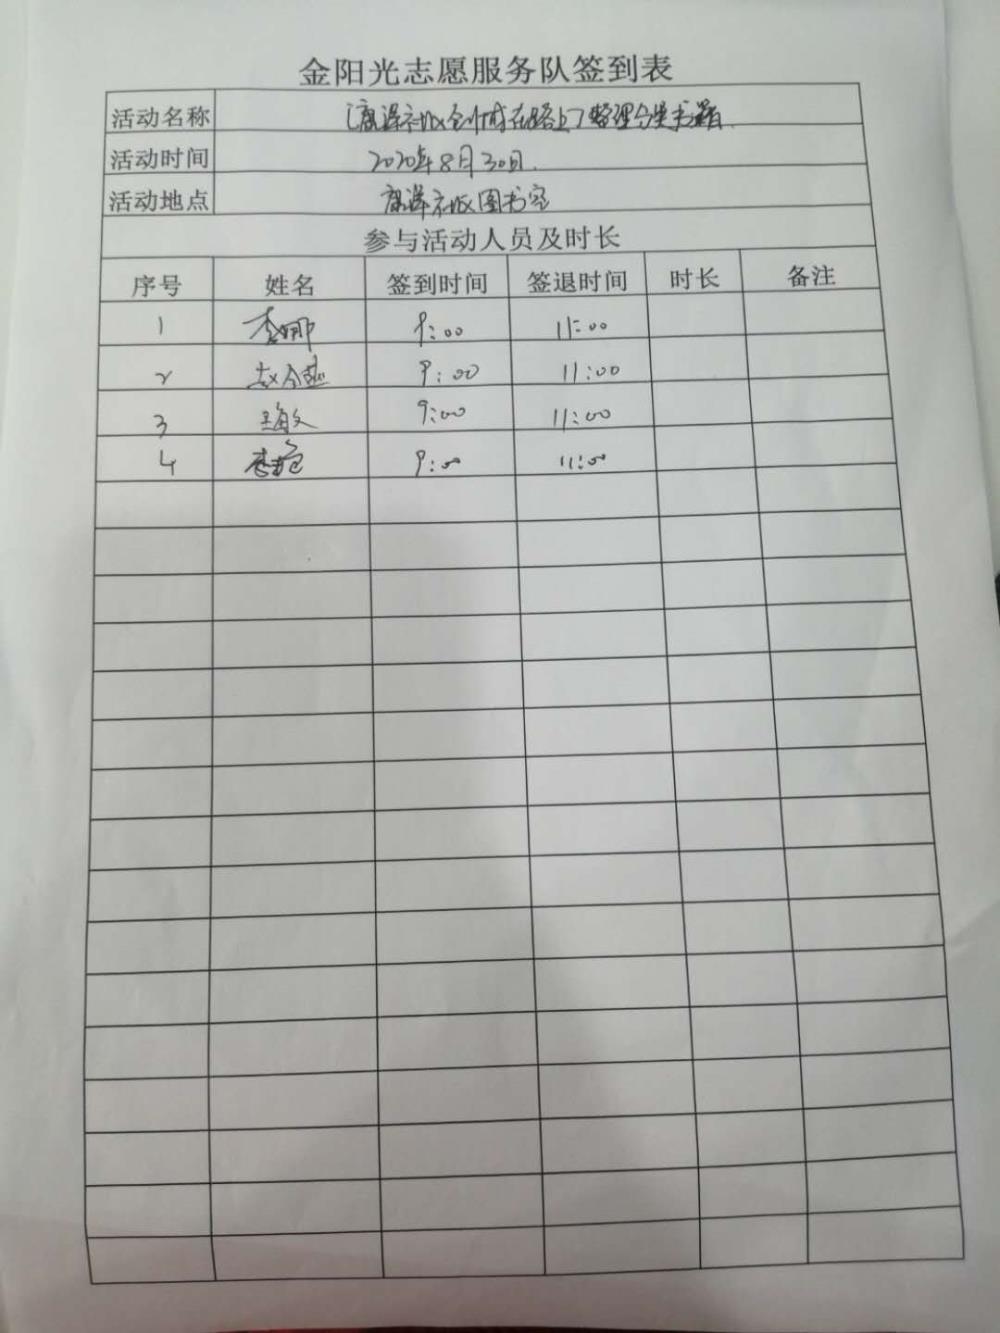 金阳光志愿服务队签到表
活动名称 [康泽社区创城在路上]整理分类书籍.
活动时间 2020年8月30日.
活动地点 康泽社区图书室
参与活动人员及时长
序号 姓名 签到时间 签退时间 时长 备注
1 李娜 9:00 11:00
2 赵 9:00 11:00
3 王敏 9:00 11:00
4 李 9:00 11:00